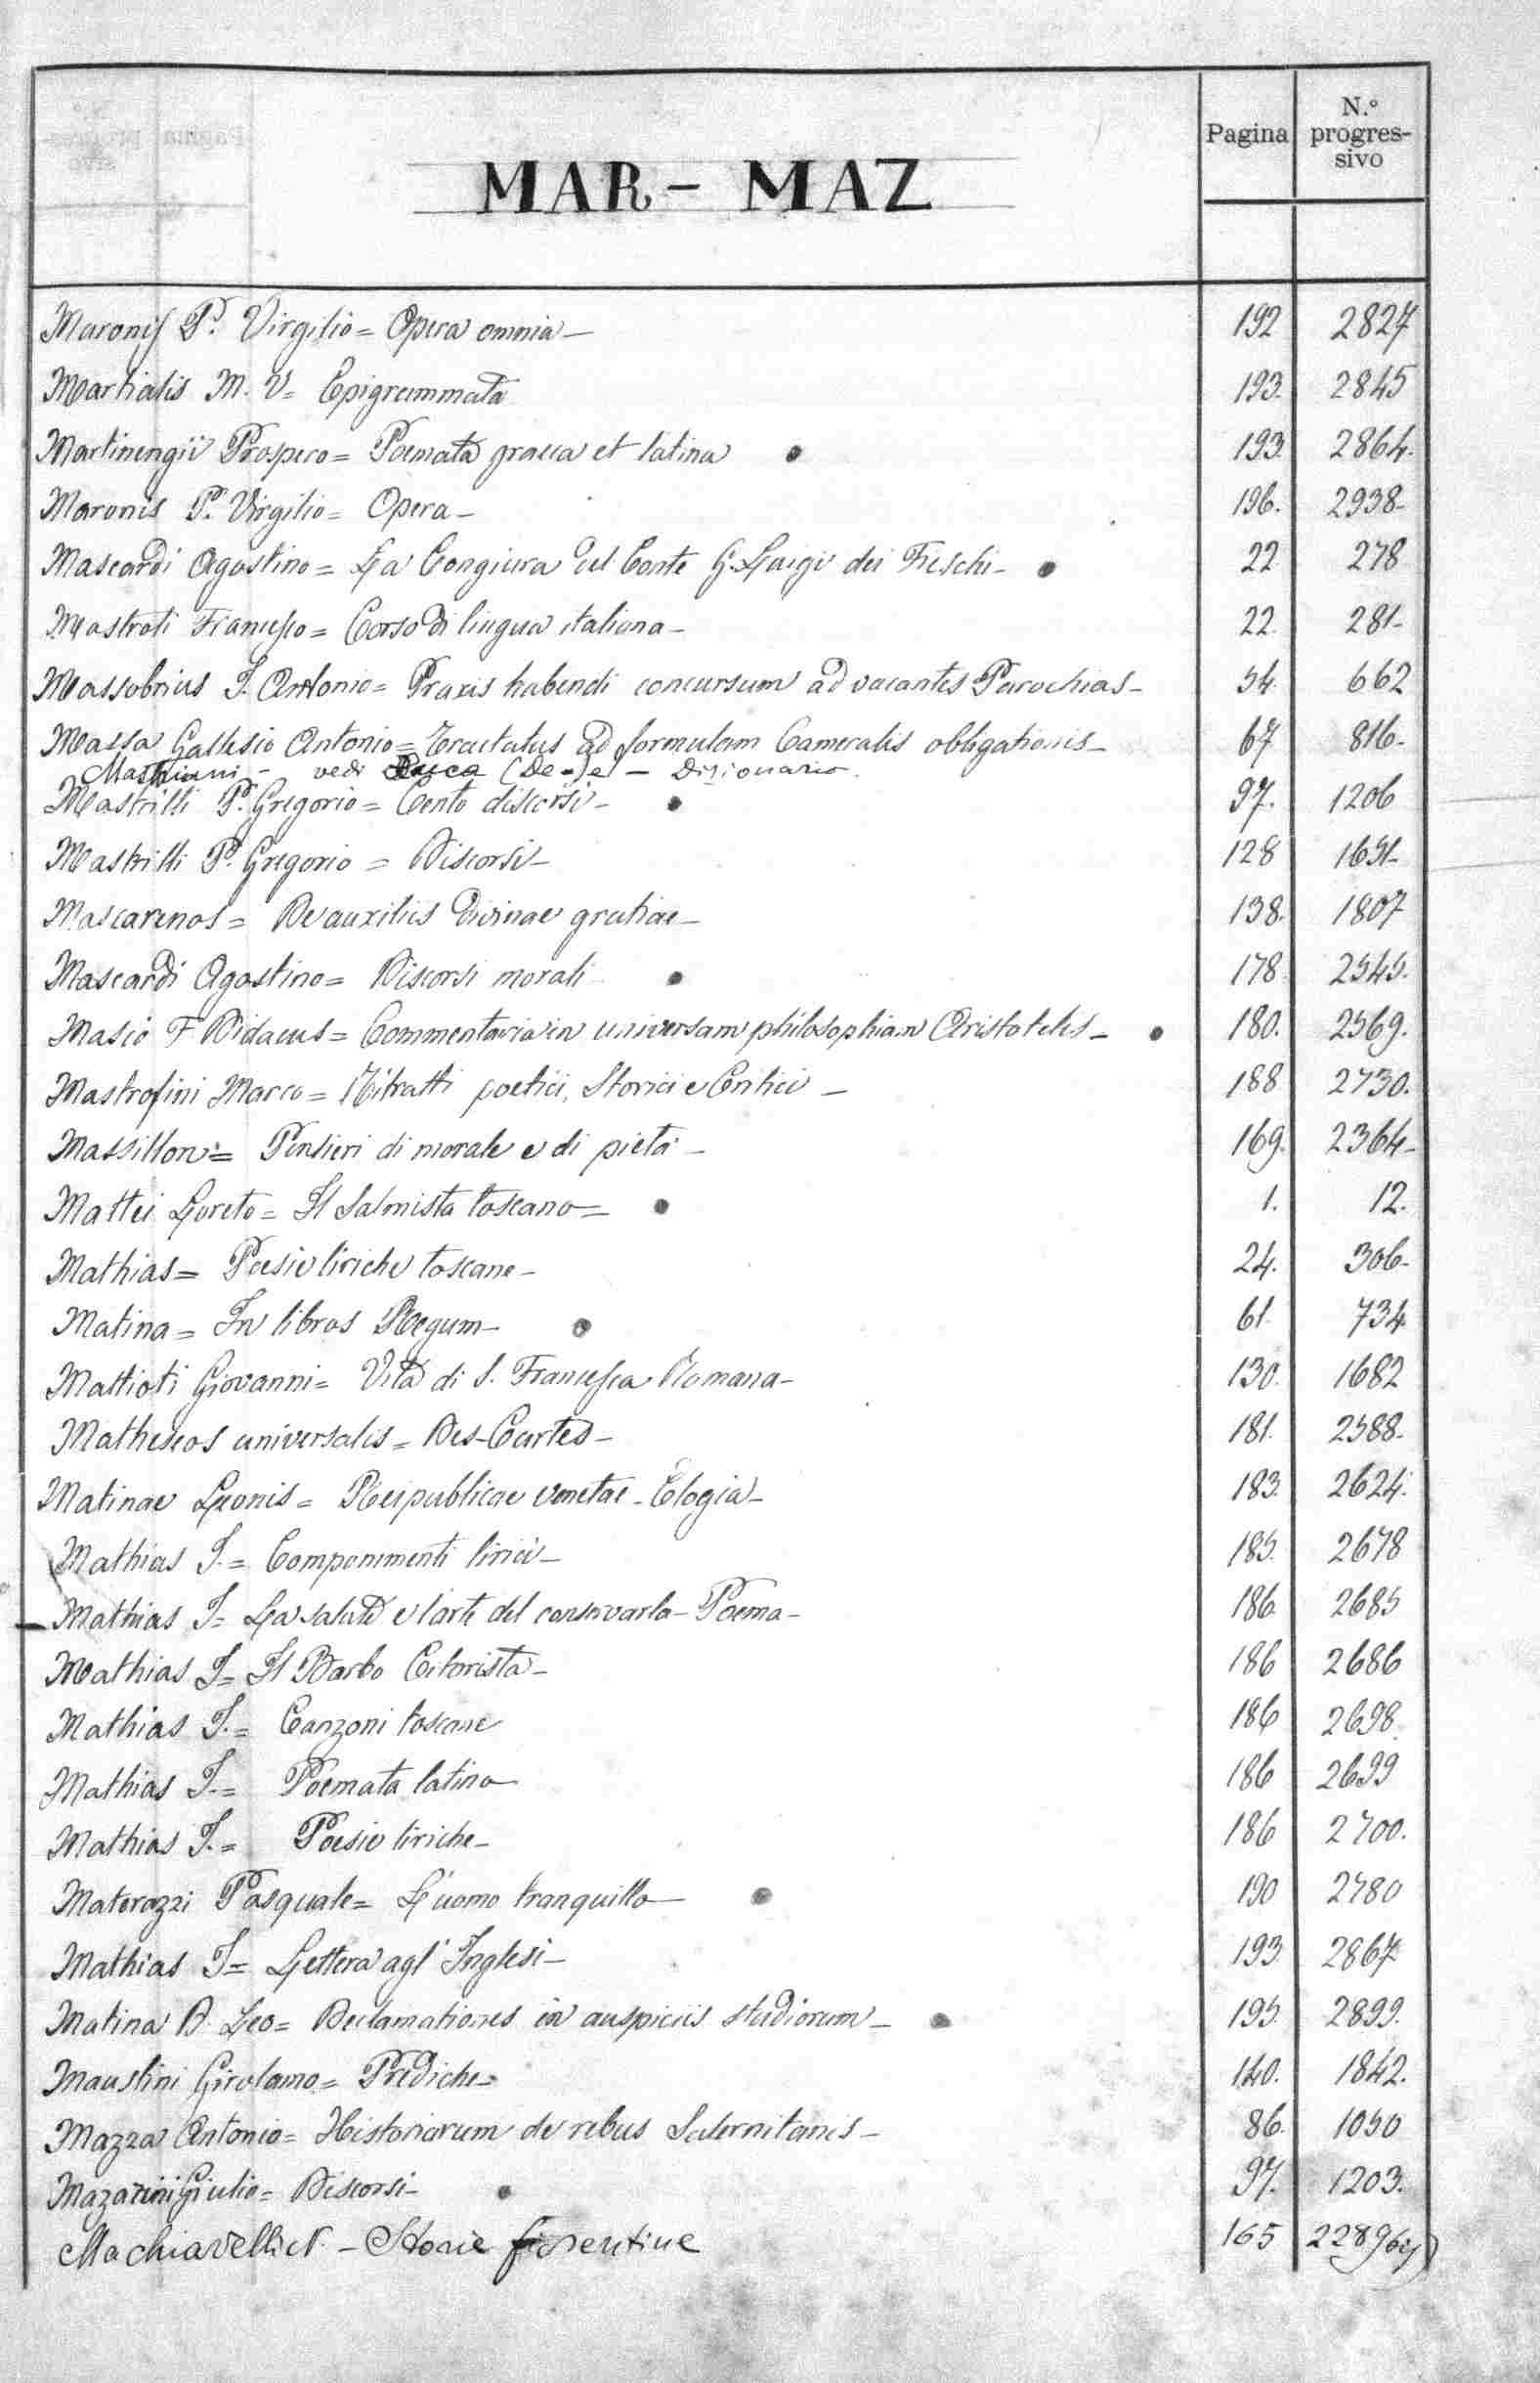 Pagina
N.°
progres-
sivo
MAR - MAZ
Maronis P. Virgilio = Opera omnia - 192 2827
Martialis M. V = Epigrammata 193. 2845
Martinengii Prospero = Poemata graeca et latina 193. 2864.
Maronis P. Virgilio = Opera - 196. 2938-
Mascardi Agostino = La Congiura del Conte G. Luigi dei Fieschi - 22 278
Mastroti Francesco = Corso di lingua italiana - 22 281-
Massobrius I. Antonio = Praxis habendi concursum ad vacantes Parochias - 54. 662
Massa Gallesio Antonio = Tractatus ad formulam Cameralis obligationis - 67 816-
- vedi (De-) e - Dizionario.
Mastrilli P. Gregorio = Cento discorsi - 97. 1206
Mastrilli P. Gregorio = Discorsi - 128
Mascarenos = De auxiliis divinae gratiae - 138. 1807
Mascardi Agostino = Discorsi morali 178 2545.
Masio F Didacus = Commentaria in universam philosophiam Aristotelis - 180. 2569.
Mastrofini Marco = Ritratti poetici, Storici e Critici - 188 2730.
Massillon = Pensieri di morale e di pietà - 169. 2364-
Mattei Loreto = Il Salmista toscano = 1. 12.
Mathias = Poesie liriche toscane - 24. 306-
Matina = In libros Regum - 61. 734
Mattioti Giovanni = Vita di S. Francesca Romana - 130. 1682
Matheseos universalis = Des-Cartes - 181. 2588-
Matinae Leonis = Reipublicae venetae - Elogia - 183. 2624.
Mathias I. = Componimenti lirici - 185. 2678
Mathias I = La salute e l'arte del conservarla - Poema - 186. 2685
Mathias I = Il Barbo Citorista - 186 2686
Mathias I. = Canzoni toscane 186 2698
Mathias I. = Poemata latina 186 2699
Mathias I. = Poesie liriche - 186 2700.
Materazzi Pasquale = L'uomo tranquillo - 190 2780
Mathias I = Lettera agl'Inglesi - 193 2867
Matina D. Leo = Declamationes in auspiciis studiorum - 195. 2899.
Mautini Girolamo = Prediche - 140. 1842.
Mazza Antonio = Historiarum de rebus Salernitanis - 86. 1050
Mazarini Giulio = Discorsi - 97. 1203.
Machiavelli N. - Storie fiorentine 165